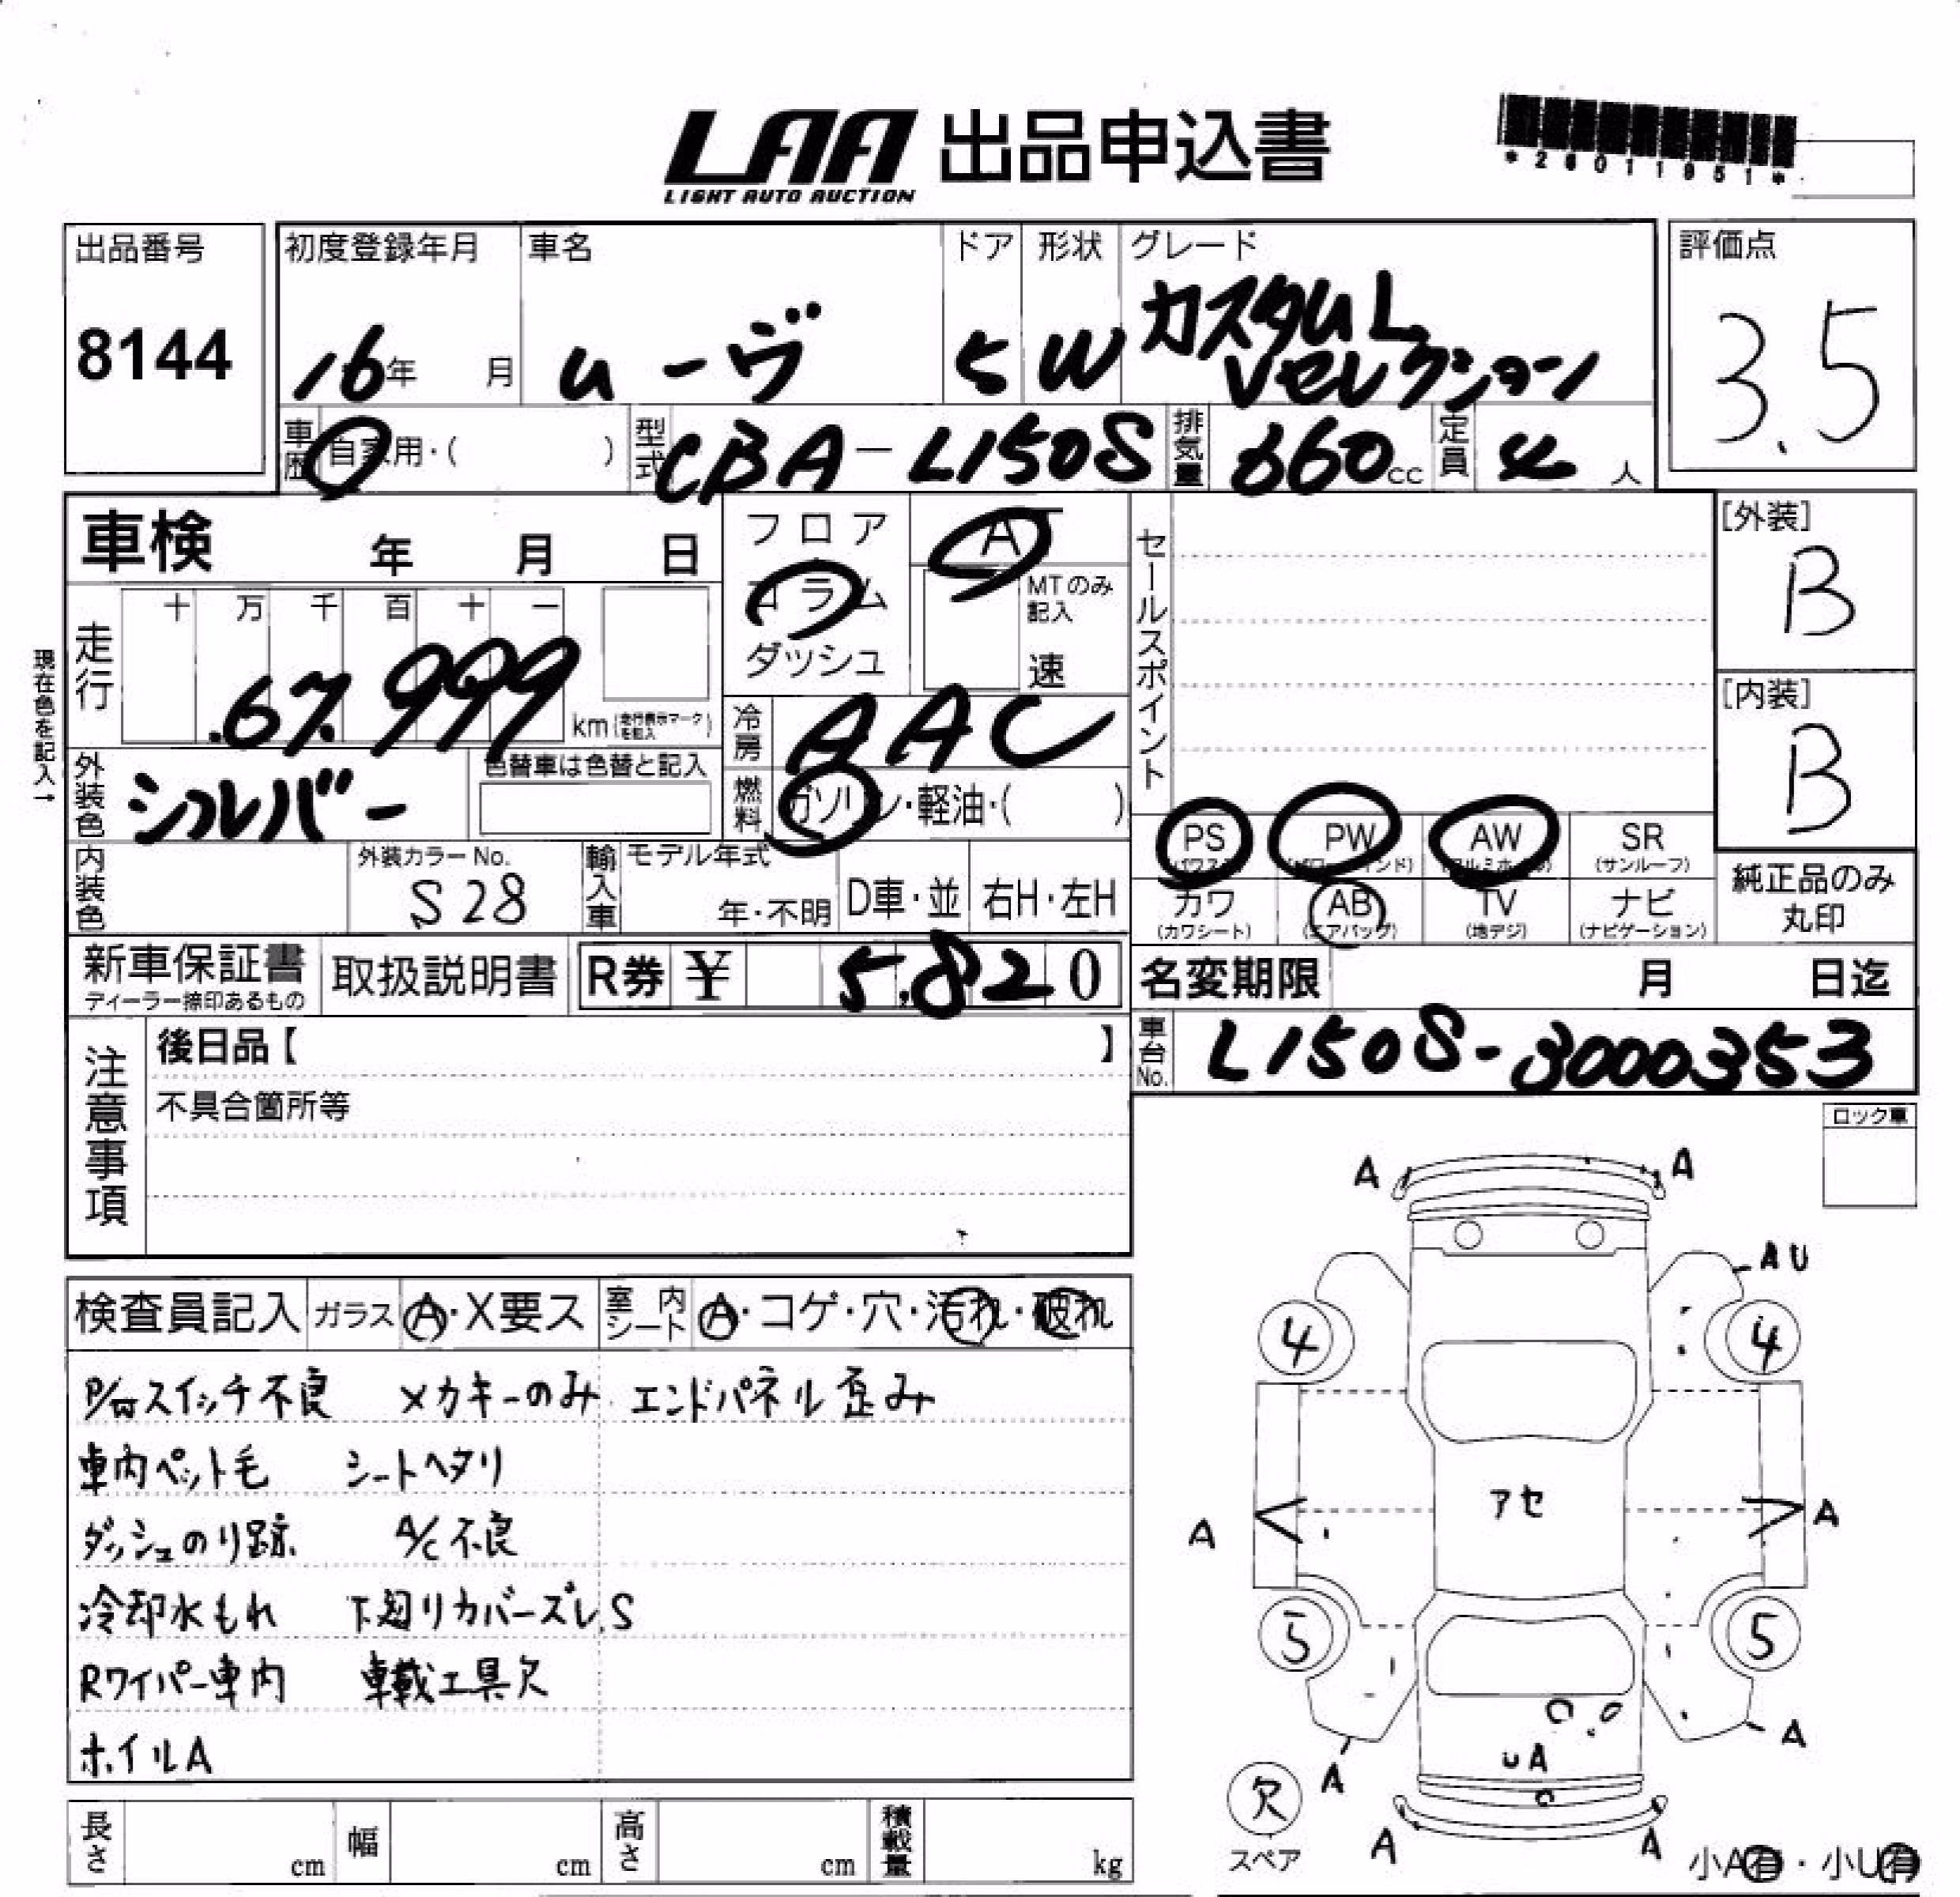 LAA 出品申込書
LIGHT AUTO AUCTION
*26011951*
出品番号
8144
初度登録年月
16年 月
車名
ムーヴ
ドア
5
形状
W
グレード
カスタムL
Vセレクション
評価点
3.5
車歴 自家用・( )
型式 CBA-L150S
排気量 660cc
定員 4人
車検 年 月 日
フロア
コラム
ダッシュ
AT
MTのみ
記入
速
セールスポイント
[外装]
B
[内装]
B
現在色を記入→
走行
十 万 千 百 十 一
67,999
km(走行表示マークを記入)
冷房 AAC
外装色 シルバー
色替車は色替と記入
燃料 ガソリン・軽油・( )
PS
(パワステ)
PW
(パワーウインド)
AW
(アルミホイール)
SR
(サンルーフ)
内装色
外装カラーNo.
S28
輸入車
モデル年式
年・不明
D車・並
右H・左H
カワ
(カワシート)
AB
(エアバッグ)
TV
(地デジ)
ナビ
(ナビゲーション)
純正品のみ
丸印
新車保証書
ディーラー捺印あるもの
取扱説明書
R券 ¥ 5,820
名変期限 月 日迄
車台No. L150S-3000353
注意事項
後日品【 】
不具合箇所等
ロック車
検査員記入
ガラス A・X要ス
室内シート A・コゲ・穴・汚れ・破れ
スイッチ不良 メカキーのみ エンドパネル歪み
車内ペット毛 シートヘタリ
ダッシュのり跡 A/C不良
冷却水もれ 下廻りカバーズレ.S
Rワイパー車内 車載工具欠
ホイルA
A A
AU
4 4
アセ
A A
5 5
A A
UA
欠
スペア
A A
小A有・小U有
長さ cm
幅 cm
高さ cm
積載量 kg